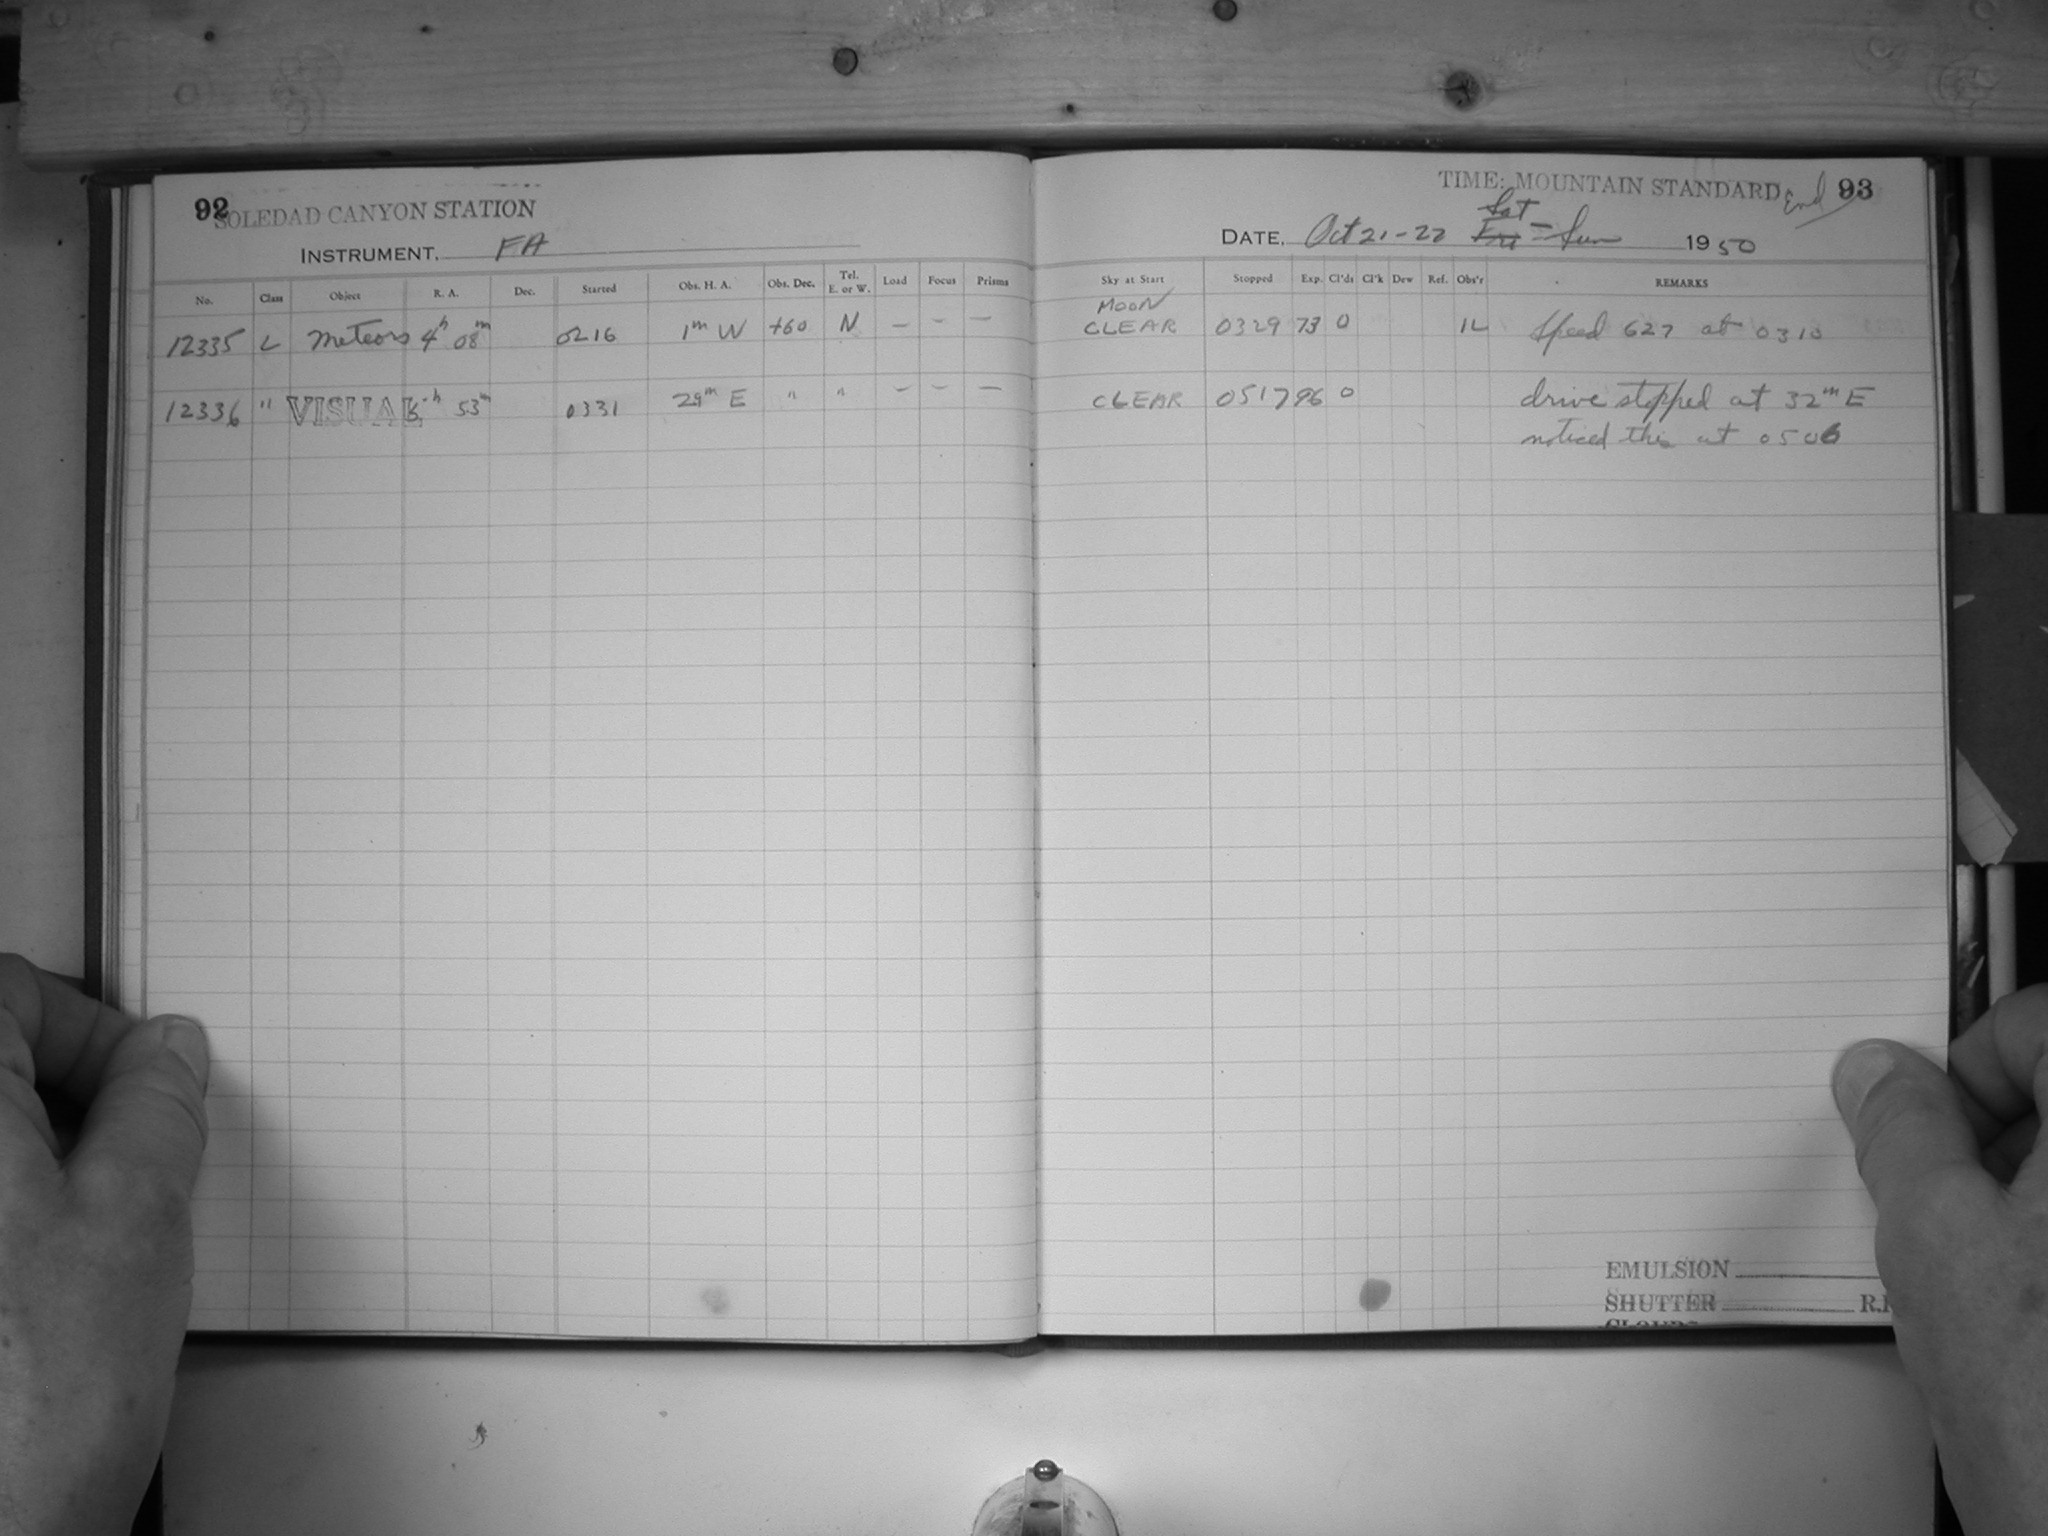 92
SOLEDAD CANYON STATION
INSTRUMENT. FA
No. Class Object R. A. Dec. Started Obs. H. A. Obs. Dec. Tel. E. or W. Load Focus Prisms
12335 L Meteors 4h 08m 0216 1m W +60 N – – –
12336 " VISUAL 5h 53m 0331 29m E " " – – –
TIME: MOUNTAIN STANDARD End 93
Sat
DATE. Oct 21-22 Fri - Sun 1950
Sky at Start Stopped Exp. Cl'ds Cl'k Dew Ref. Obs'r REMARKS
MOON
CLEAR 0329 73 0 IL Speed 627 at 0310
CLEAR 0517 96 0 drive stopped at 32m E
noticed this at 0506
EMULSION
SHUTTER
CLOUDS